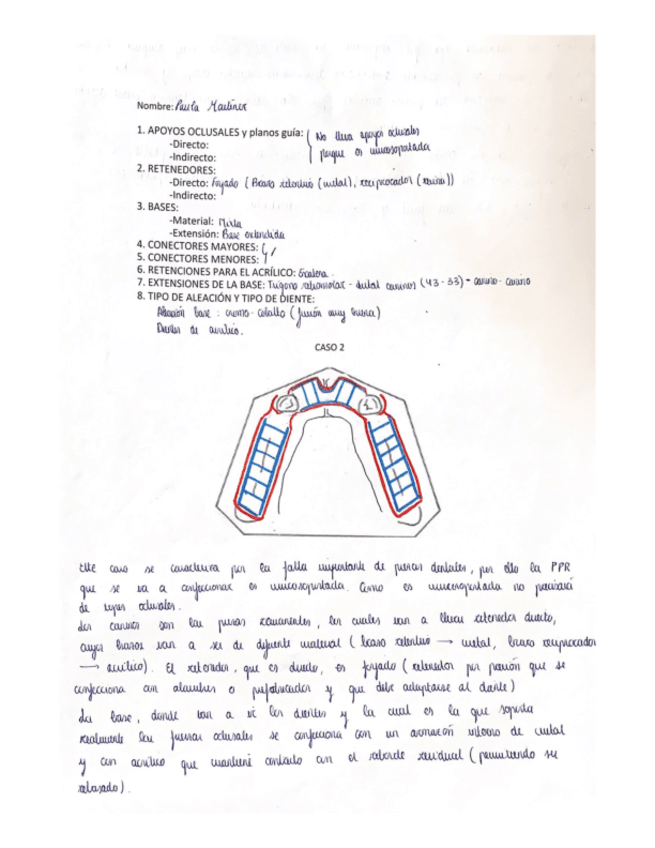 Nombre: Paula Martínez
1. APOYOS OCLUSALES y planos guía: No lleva apoyos oclusales
-Directo: porque es mucosoportada
-Indirecto:
2. RETENEDORES:
-Directo: Forjado (Brazo retentivo (metal), reciprocador (resina))
-Indirecto:
3. BASES:
-Material: Mixta
-Extensión: Base extendida
4. CONECTORES MAYORES:
5. CONECTORES MENORES:
6. RETENCIONES PARA EL ACRÍLICO: Escalera.
7. EXTENSIONES DE LA BASE: Trígono retromolar - distal caninos (43-33) - canino-canino
8. TIPO DE ALEACIÓN Y TIPO DE DIENTE:
Aleación base: cromo-cobalto (fusión muy buena)
Dientes de acrílico.
CASO 2
Este caso se caracteriza por la falta importante de piezas dentales, por ello la PPR
que se va a confeccionar es mucosoportada. Como es mucosoportada no precisará
de topes oclusales.
Los caninos son las piezas remanentes, los cuales van a llevar retenedor directo,
cuyos brazos van a ser de diferente material (brazo retentivo → metal, brazo reciprocador
→ acrílico). El retenedor, que es directo, es forjado (retenedor por presión que se
confecciona con alambres o prefabricados y que debe adaptarse al diente)
La base, donde van a ir los dientes y la cual es la que soporta
realmente las fuerzas oclusales se confecciona con un armazón interno de metal
y con acrílico que mantiene contacto con el reborde residual (permitiendo su
rebasado).